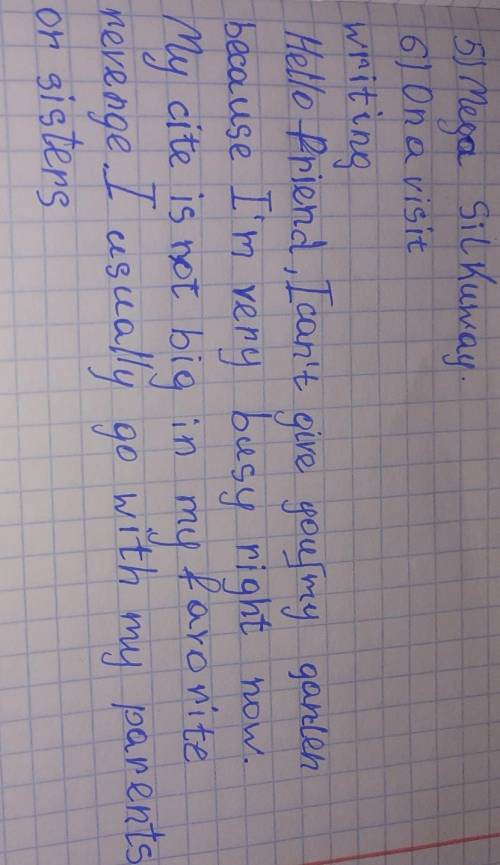 5) Mega Silkuway.
6) On a visit
writing
Hello friend, I can't give you my garden
because I'm very busy right now.
My cite is not big in my favorite
revenge. I usually go with my parents
or sisters